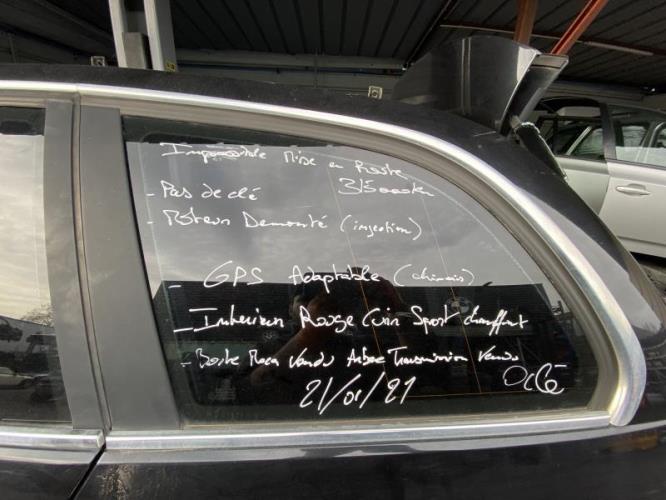 Impossible Mise en Route
- Pas de clé 315000km
- Moteur Demonté (injection)
- GPS Adaptable (chinois)
- Interieur Rouge Cuir Sport chauffant
- Boite Meca Vendu Arbre Transmission Vendu
21/01/21 0 clé